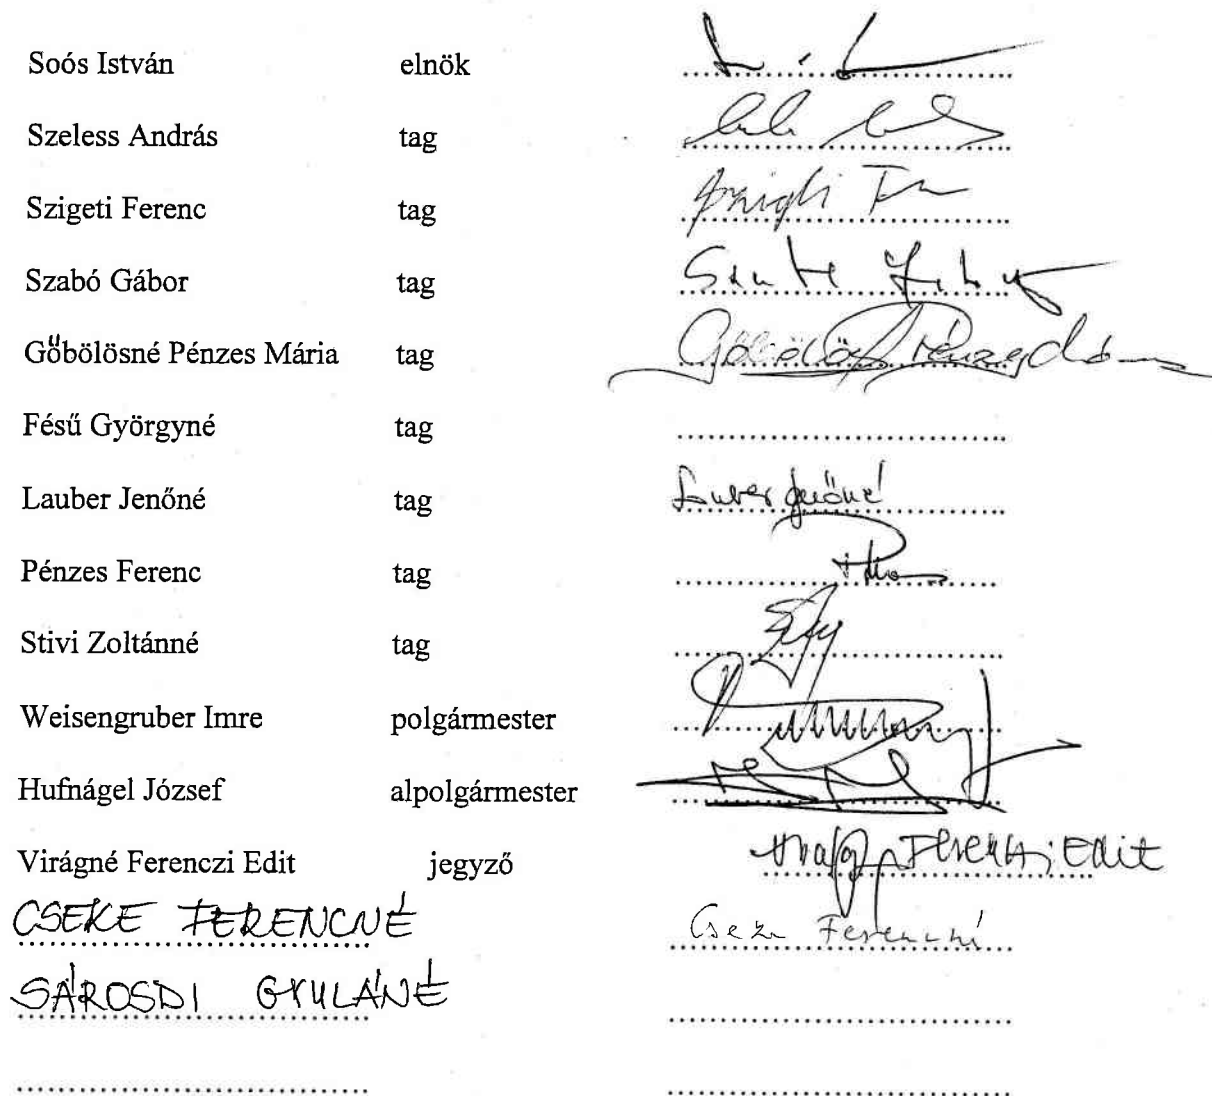 Soós István elnök
Szeless András tag
Szigeti Ferenc tag
Szabó Gábor tag
Gőbölösné Pénzes Mária tag
Fésű Györgyné tag
Lauber Jenőné tag Lauber Jenőné
Pénzes Ferenc tag
Stivi Zoltánné tag
Weisengruber Imre polgármester
Hufnágel József alpolgármester
Virágné Ferenczi Edit jegyző Ferenczi Edit
CSEKE FERENCNÉ Cseke Ferencné
SÁROSDI GYULÁNÉ